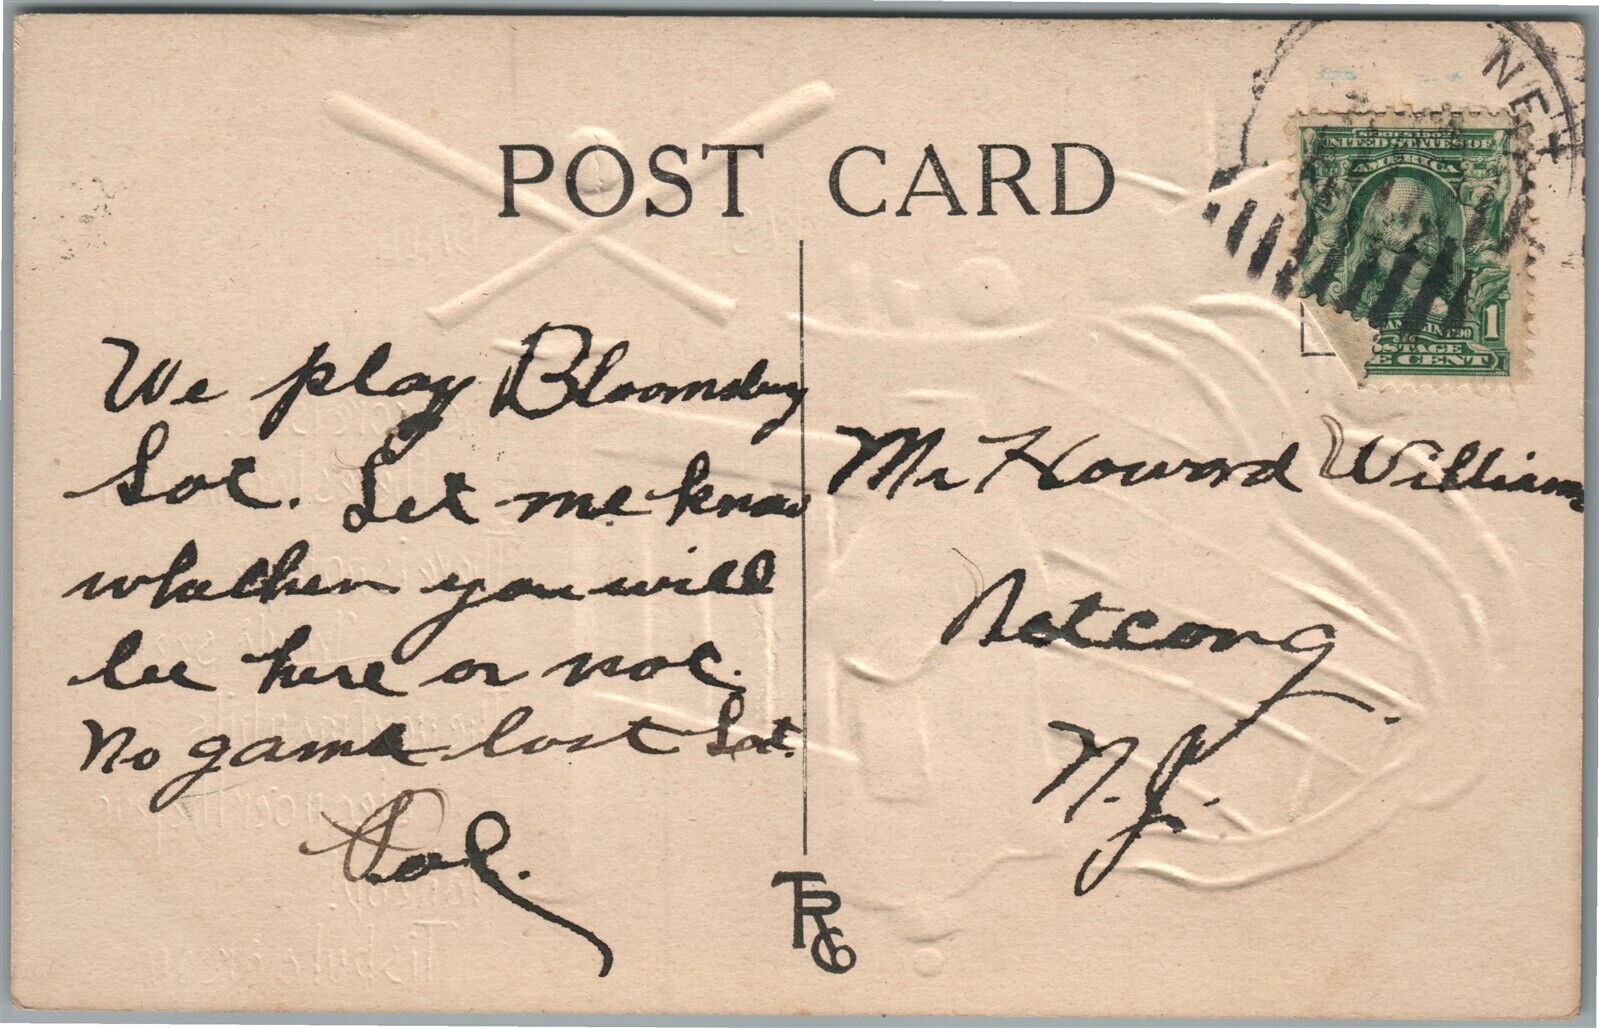 POST CARD
NEW
SERIES 1902
UNITED STATES OF
AMERICA
FRANKLIN 1790
POSTAGE
1
E CENT
We play Bloomsbury
Sat. Let me know
whether you will
be here or not.
No game last Sat.
Mr Howard Williams
Netcong
N.J.
TRCo